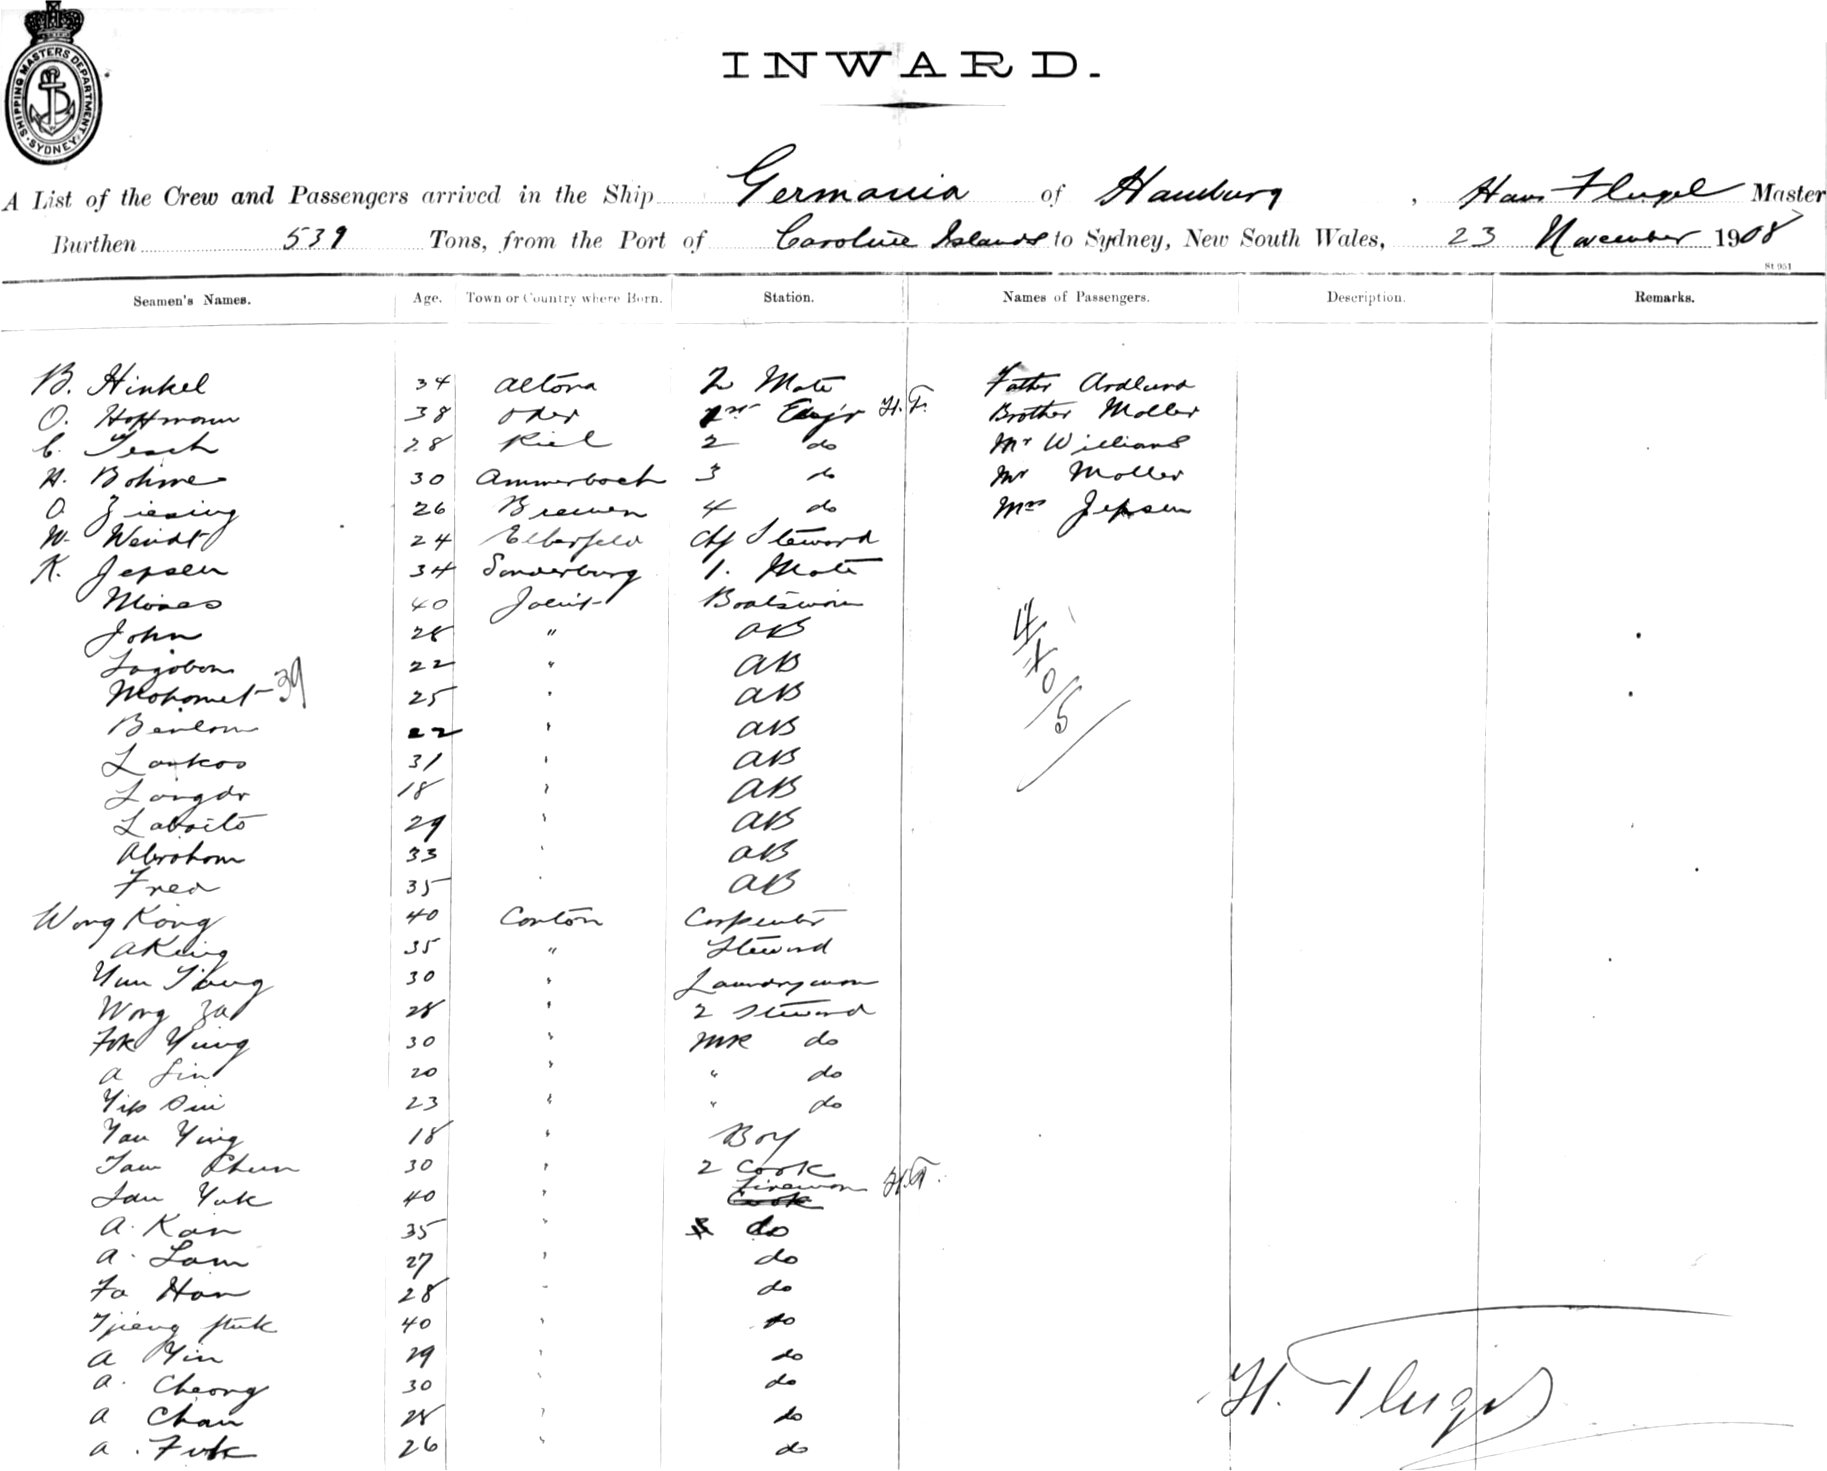 SHIPPING MASTERS DEPARTMENT
SYDNEY
INWARD.
A List of the Crew and Passengers arrived in the Ship Germania of Hamburg, Hans Flugel Master
Burthen 539 Tons, from the Port of Caroline Islands to Sydney, New South Wales, 23 November 1908
St 951
Seamen's Names. Age. Town or Country where Born. Station. Names of Passengers. Description. Remarks.
B. Hinkel 34 Altona 2 Mate Father
O. Hoffmann 38 Oder 1st Eng'r H.F. Brother Moller
C. Tesch 28 Kiel 2 do Mr Williams
H. Bohme 30 Ammerbach 3 do Mr Moller
O Ziesing 26 Bremen 4 do Mrs Jepsen
W. Wendt 24 Elberfeld Chf Steward
K. Jepsen 34 Sonderburg 1. Mate
Moses 40 Jaluit Boatswain
John 28 " AB
Lagobon 22 " AB
Mohomet 39 25 " AB
22 " AB
Lankos 31 " AB
Langdr 18 " AB
Laboito 29 " AB
Abraham 33 " AB
Fred 35 " AB
Wong Kong 40 Canton Carpenter
AKeing 35 " Steward
30 " Laundryman
Wong Za 28 " 2 Steward
Fok Yung 30 " do
A Lin 20 " " do
Yip Sui 23 " " do
Yau Ying 18 " Boy
Tam Chun 30 " 2 Cook
Lau Yuk 40 " Fireman Cook H.F.
A. Kan 35 " do
A. Lam 27 " do
Fo Han 28 " do
40 " do
A Yin 29 " do
A. Cheong 30 " do
A Chan 28 " do
A. Fuk 26 " do
H. Flugel